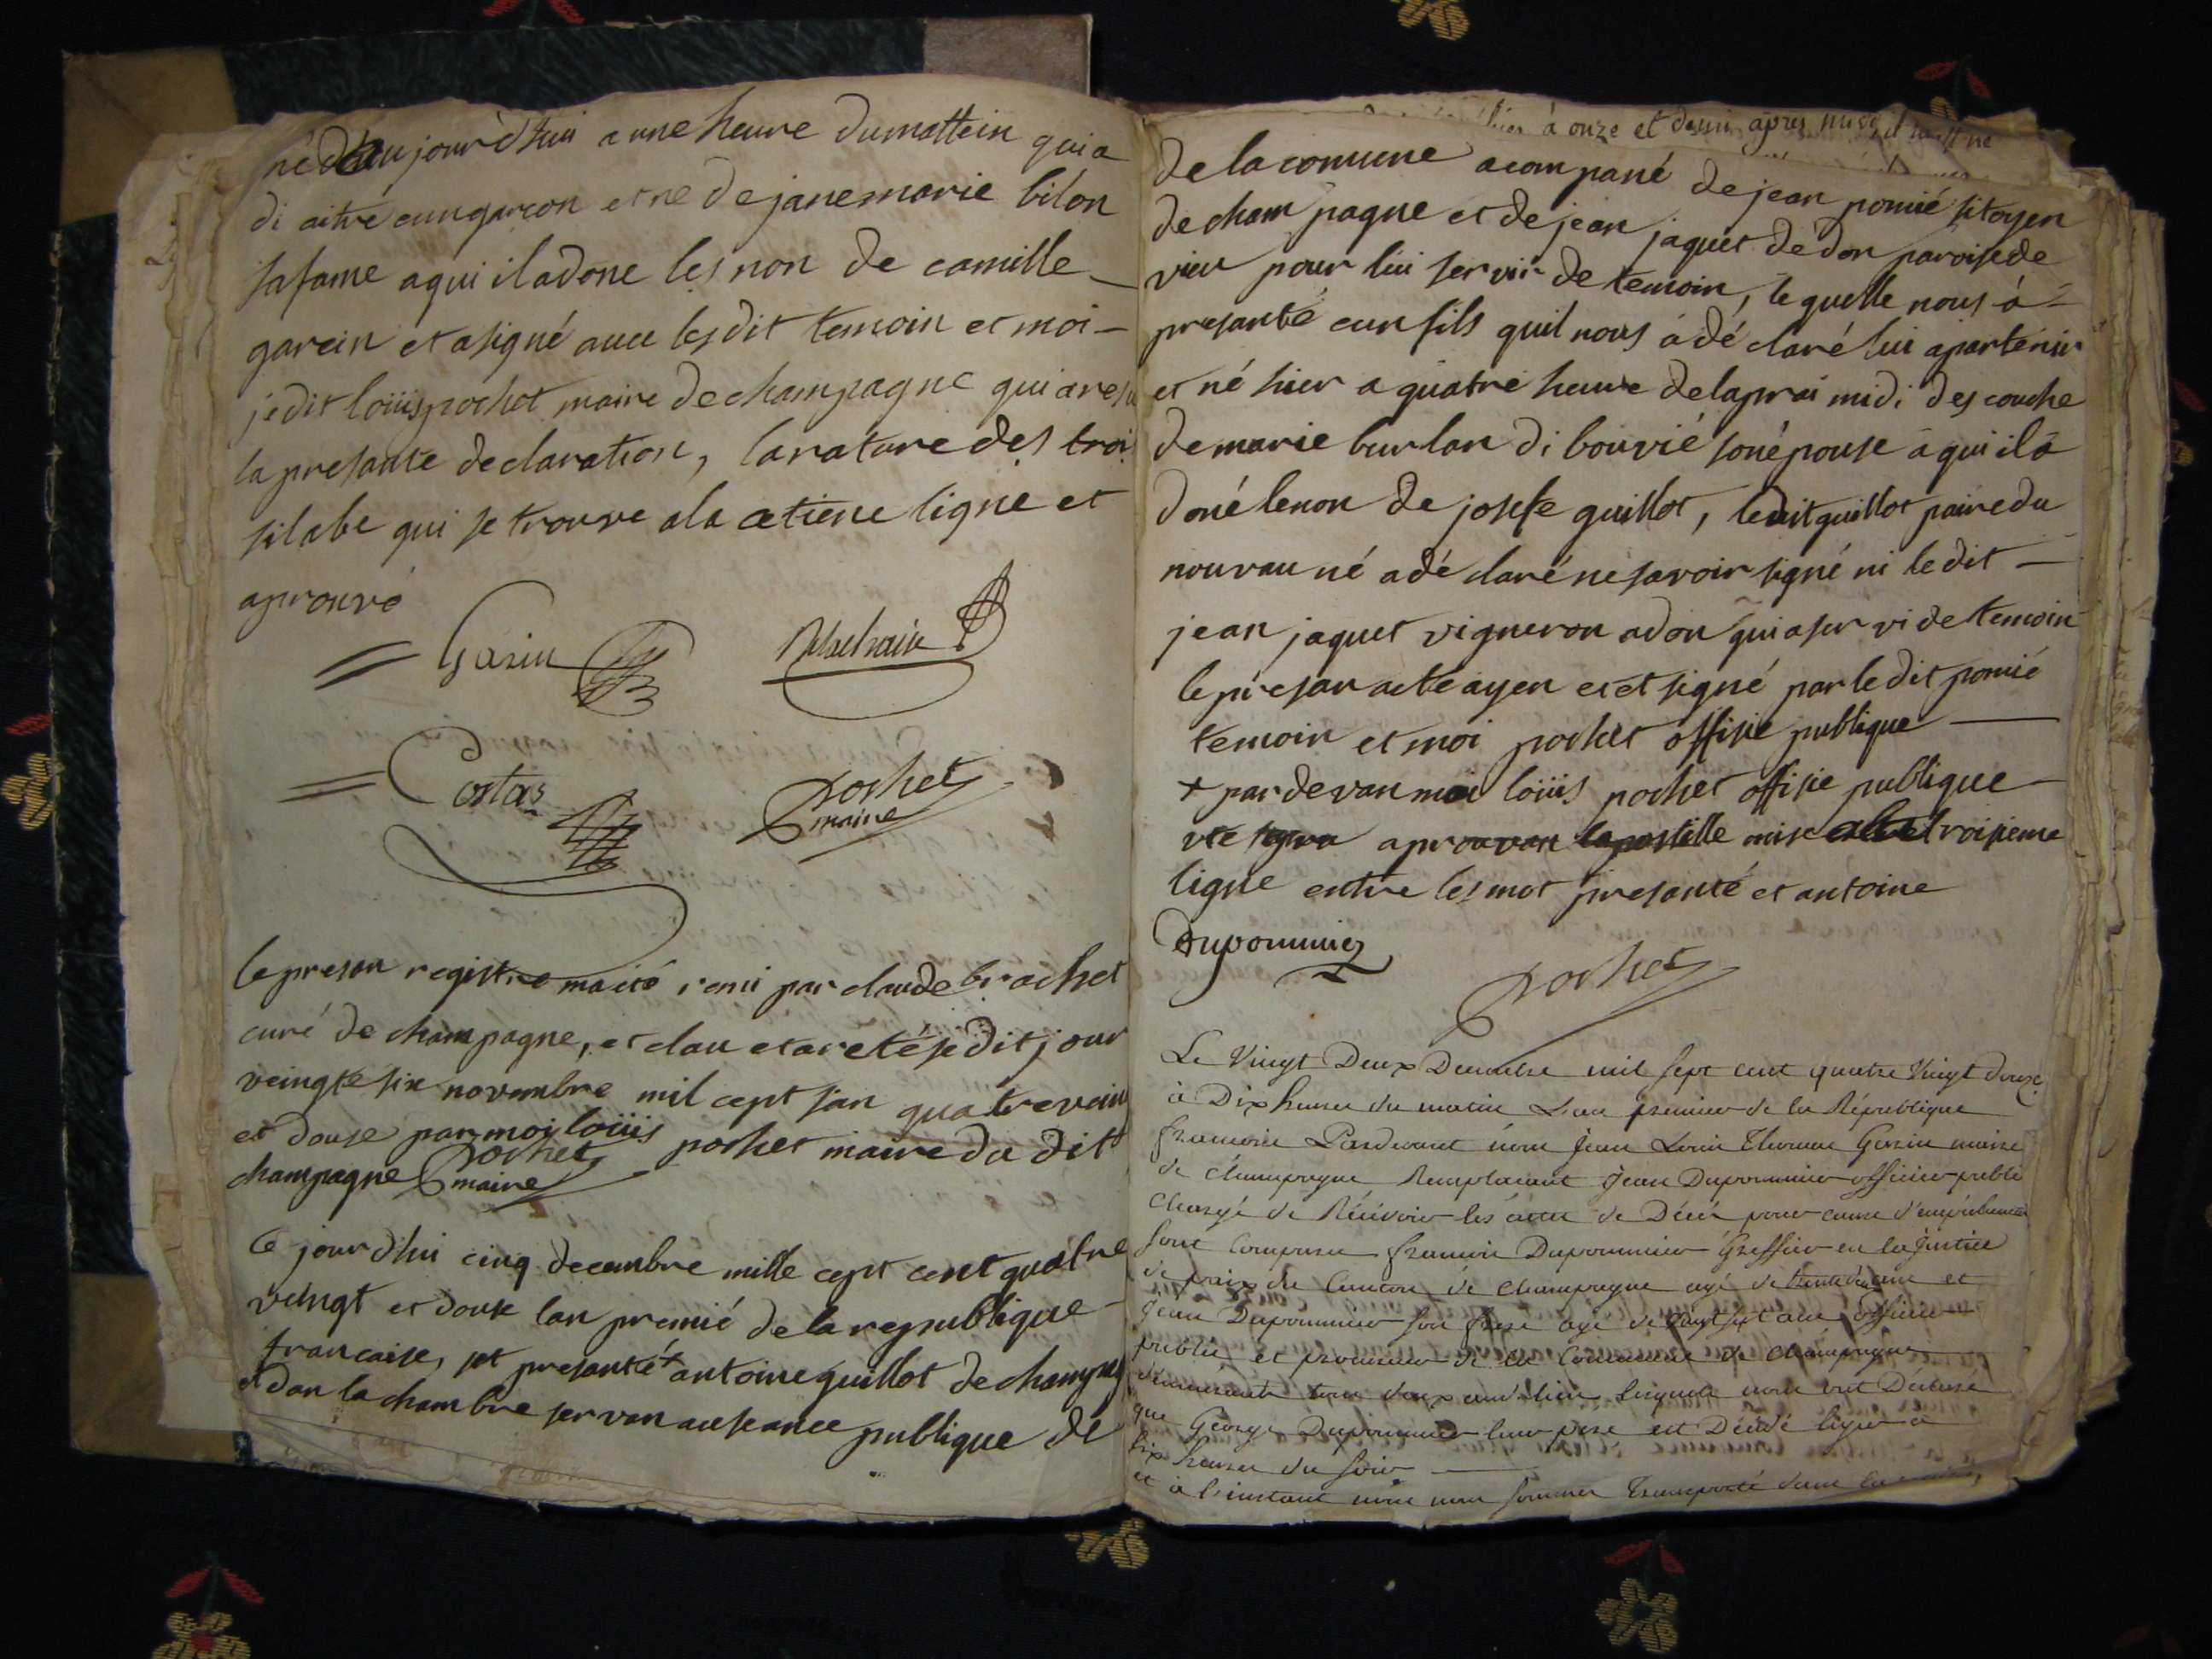 né daujourdhui a une heure dumattein qui a
di aitre eun garcon et né de jane marie bilon
sa fame a qui il a done les non de camille
garein et a signé avec les dit temoin et moi
je dit loüis pochet maire de champagne qui a resu
la presante declaration, la rature des troi
silabe qui se trouve a la cetiene ligne et
aprouvé
Garin
Costas
Pochet
maire
le presan registre maeté remi par claude brachet
curé de champagne, et clau et areté se dit jour
veingte six novembre mil cept san quatre vein
et douse par moi loüis pochet maire du dit
champagne Pochet
maire
Ce jourdhui cinq decembre mille cept cent quatre
veingt et douse lan premié de la republique
francaise, set presanté + antoine guillot de champagne
et dan la chambre servan au seance publique de
à onze et demi apres
de la comune acompané de jean pomié sitoyen
de champagne et de jean jaquet de don paroise de
vieu pour lui servir de temoin, le quelle nous à
presanté eun fils quil nous à déclaré lui apartenir
et né hier a quatre heure de laprai midi des couche
de marie burlan di bouvié son épouse à qui il à
doné le non de josefe guillot, le dit guillot paire du
nouvau né a déclaré ne savoir signé ni le dit
jean jaquet vigneron a don qui a servi de temoin
le présan acte ayen etet signé par le dit pomié
temoin et moi pochet offisié publique
+ par devan moi loüis pochet offisie publique
aprouvan lapostille mise a la troisieme
ligne entre les mot presanté et antoine
Dupommier
Pochet
Le Vingt Deux Decembre mil sept cent quatre Vingt douze
à Dix heures du matin L'an premier de la République
francoise Pardevant nous Jean Louis Thomas Garin maire
de Champagne Remplacant Jean Dupommier officier public
Chargé de Récévoir les actes de Décés pour cause d'empéchement
sont Comparus francois Dupommier Greffier en la justice
de paix du Canton de Champagne agé de trente deux ans et
Jean Dupommier son frere agé de vingt sept ans officier
public et procureur de la Commune de Champagne
demeurants tous deux audit lieu lesquels nous ont Déclaré
que George Dupommier leur pere est Décédé hyer a
six heures du soir
et à l'instant nous nous sommes Transporté dans la